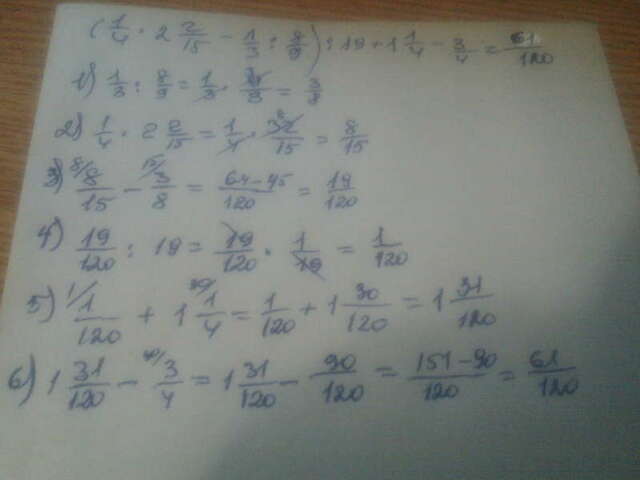 (1/4 · 2 2/15 - 1/3 : 8/9) : 19 + 1 1/4 - 3/4 = 61/120
1) 1/3 : 8/9 = 1/3 · 9/8 = 3/8
2) 1/4 · 2 2/15 = 1/4 · 32/15 = 8/15
3) 8/ 8/15 - 15/ 3/8 = 64-45/120 = 19/120
4) 19/120 : 19 = 19/120 · 1/19 = 1/120
5) 1/ 1/120 + 1 30/ 1/4 = 1/120 + 1 30/120 = 1 31/120
6) 1 31/120 - 30/ 3/4 = 1 31/120 - 90/120 = 151-90/120 = 61/120